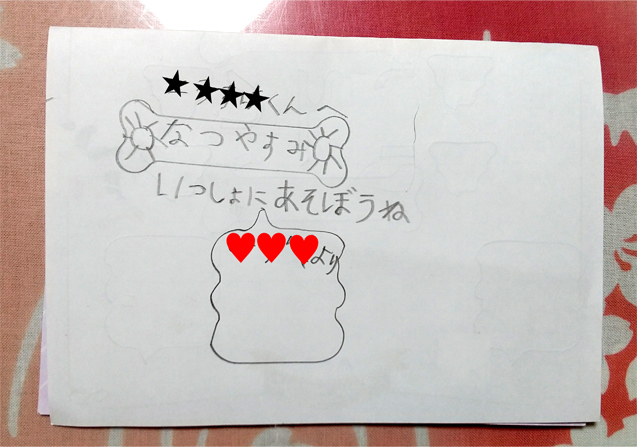 くんへ
なつやすみ
いっしょにあそぼうね
より